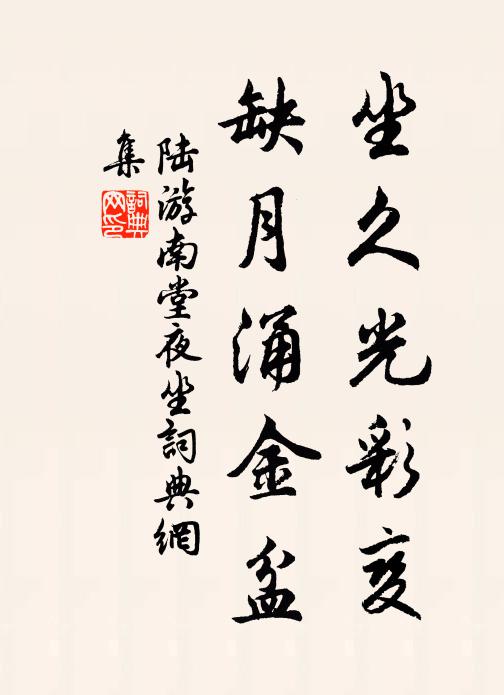 坐久光彩变
缺月涌金盆
陆游南堂夜坐詞典網
集
詞典網印